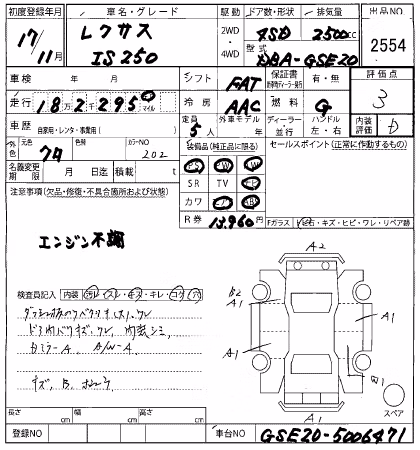 初度登録年月 車名・グレード 駆動 ドア数・形状 排気量 出品NO
17/11月 レクサス IS250 2WD 4WD 4SD 2500cc 2554
型式 DBA-GSE20
車検 年 月 シフト FAT 保証書 有・無 評価点
走行 182295 km マイル 冷房 AAC 燃料 G 3
車歴 自家用・レンタ・事業用( ) 定員 5人 外車モデル 年 ディーラー・並行 ハンドル 左・右 内装評価 D
外色 クロ 元色 色替 カラーNO 202
装備品(純正品に限る) セールスポイント(正常に作動するもの)
名義変更期限 月 日迄 積載量 t
PS PW
SR TV
カワ
R券 13,960円
注意事項(欠品・修復・不具合箇所および状態)
Fガラス 飛石・キズ・ヒビ・ワレ・リペア跡
エンジン不調
A2
B2
A1
A1
A1
A1
検査員記入 内装 汚レ・スレ・キズ・キレ・コゲ・穴
ドア内バリキズ、ワレ 内装シミ
A/W-A
キズ、B、
スペア
長さ cm 幅 cm 高さ cm
登録NO 車台NO GSE20-5006471